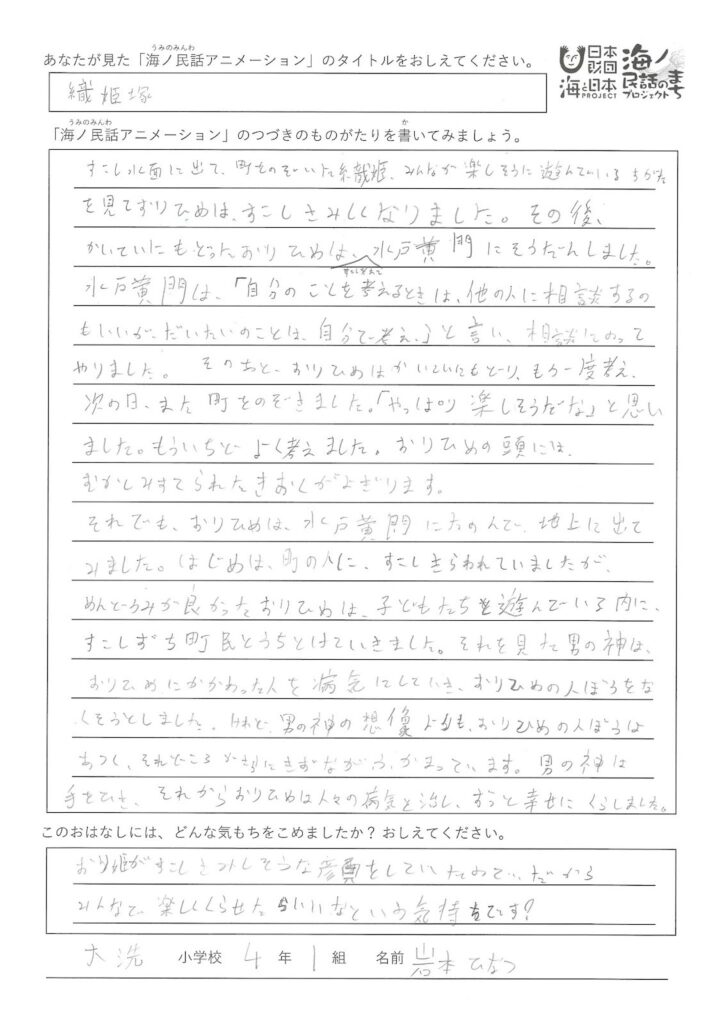 うみのみんわ
あなたが見た「海ノ民話アニメーション」のタイトルをおしえてください。
日本財団
海と日本
PROJECT
海ノ民話のまち
プロジェクト
織姫塚
うみのみんわ か
「海ノ民話アニメーション」のつづきのものがたりを書いてみましょう。
すこし水面に出て、町をのぞいた織姫、みんなが楽しそうに遊んでいる
を見ており ひめは、すこしさみしくなりました。その後、
かいていにもどったおりひめは、水戸黄門にそうだんしました。
すこし考えて
水戸黄門は、「自分のことを考えるときは、他の人に相談するの
もいいが、だいたいのことは、自分で考え、」と言い、相談にのって
やりました。そのあと、おりひめはかいていにもどり、もう一度考え、
次の日、また町をのぞきました。「やっぱり楽しそうだな」と思い
ました。もういちどよく考えました。おりひめの頭には、
むかしみすてられたきおくがよぎります。
それでも、おりひめは、水戸黄門にたのんで、地上に出て
みました。はじめは、町の人に、すこしきらわれていましたが、
めんどうみが良かったおりひめは、子どもたちと遊んでいる内に、
すこしずつ町民とうちとけていきました。それを見た男の神は、
おりひめにかかわった人を病気にしていき、おりひめの人ぼうをな
くそうとしました。けれど、男の神の想像よりも、おりひめの人ぼうは
あつく、それどころかさらにきずながふかまっています。男の神は
手をひき、それからおりひめは人々の病気を治し、ずっと幸せにくらしました。
このおはなしには、どんな気もちをこめましたか？おしえてください。
おり姫がすこしさみしそうな顔をしていたので、だから
みんなで楽しくくらせたらいいなという気持ちです?
大洗 小学校 4 年 1 組 名前 岩本ひなつ